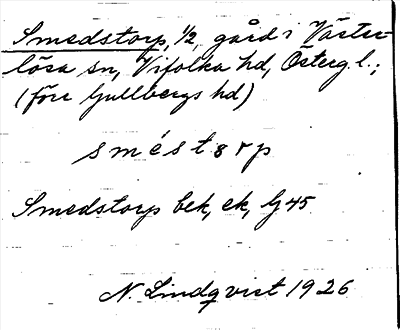 Smedstorp, 1/2, gård i Väster-
lösa sn, Vifolka hd, Österg. l.;
(förr Gullbergs hd)
smést8rp
Smedstorp bek, ek, G45
N. Lindqvist 1926